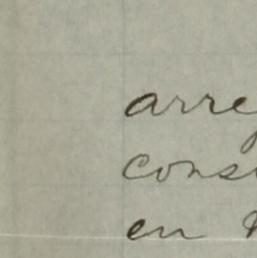 arre
cons
en